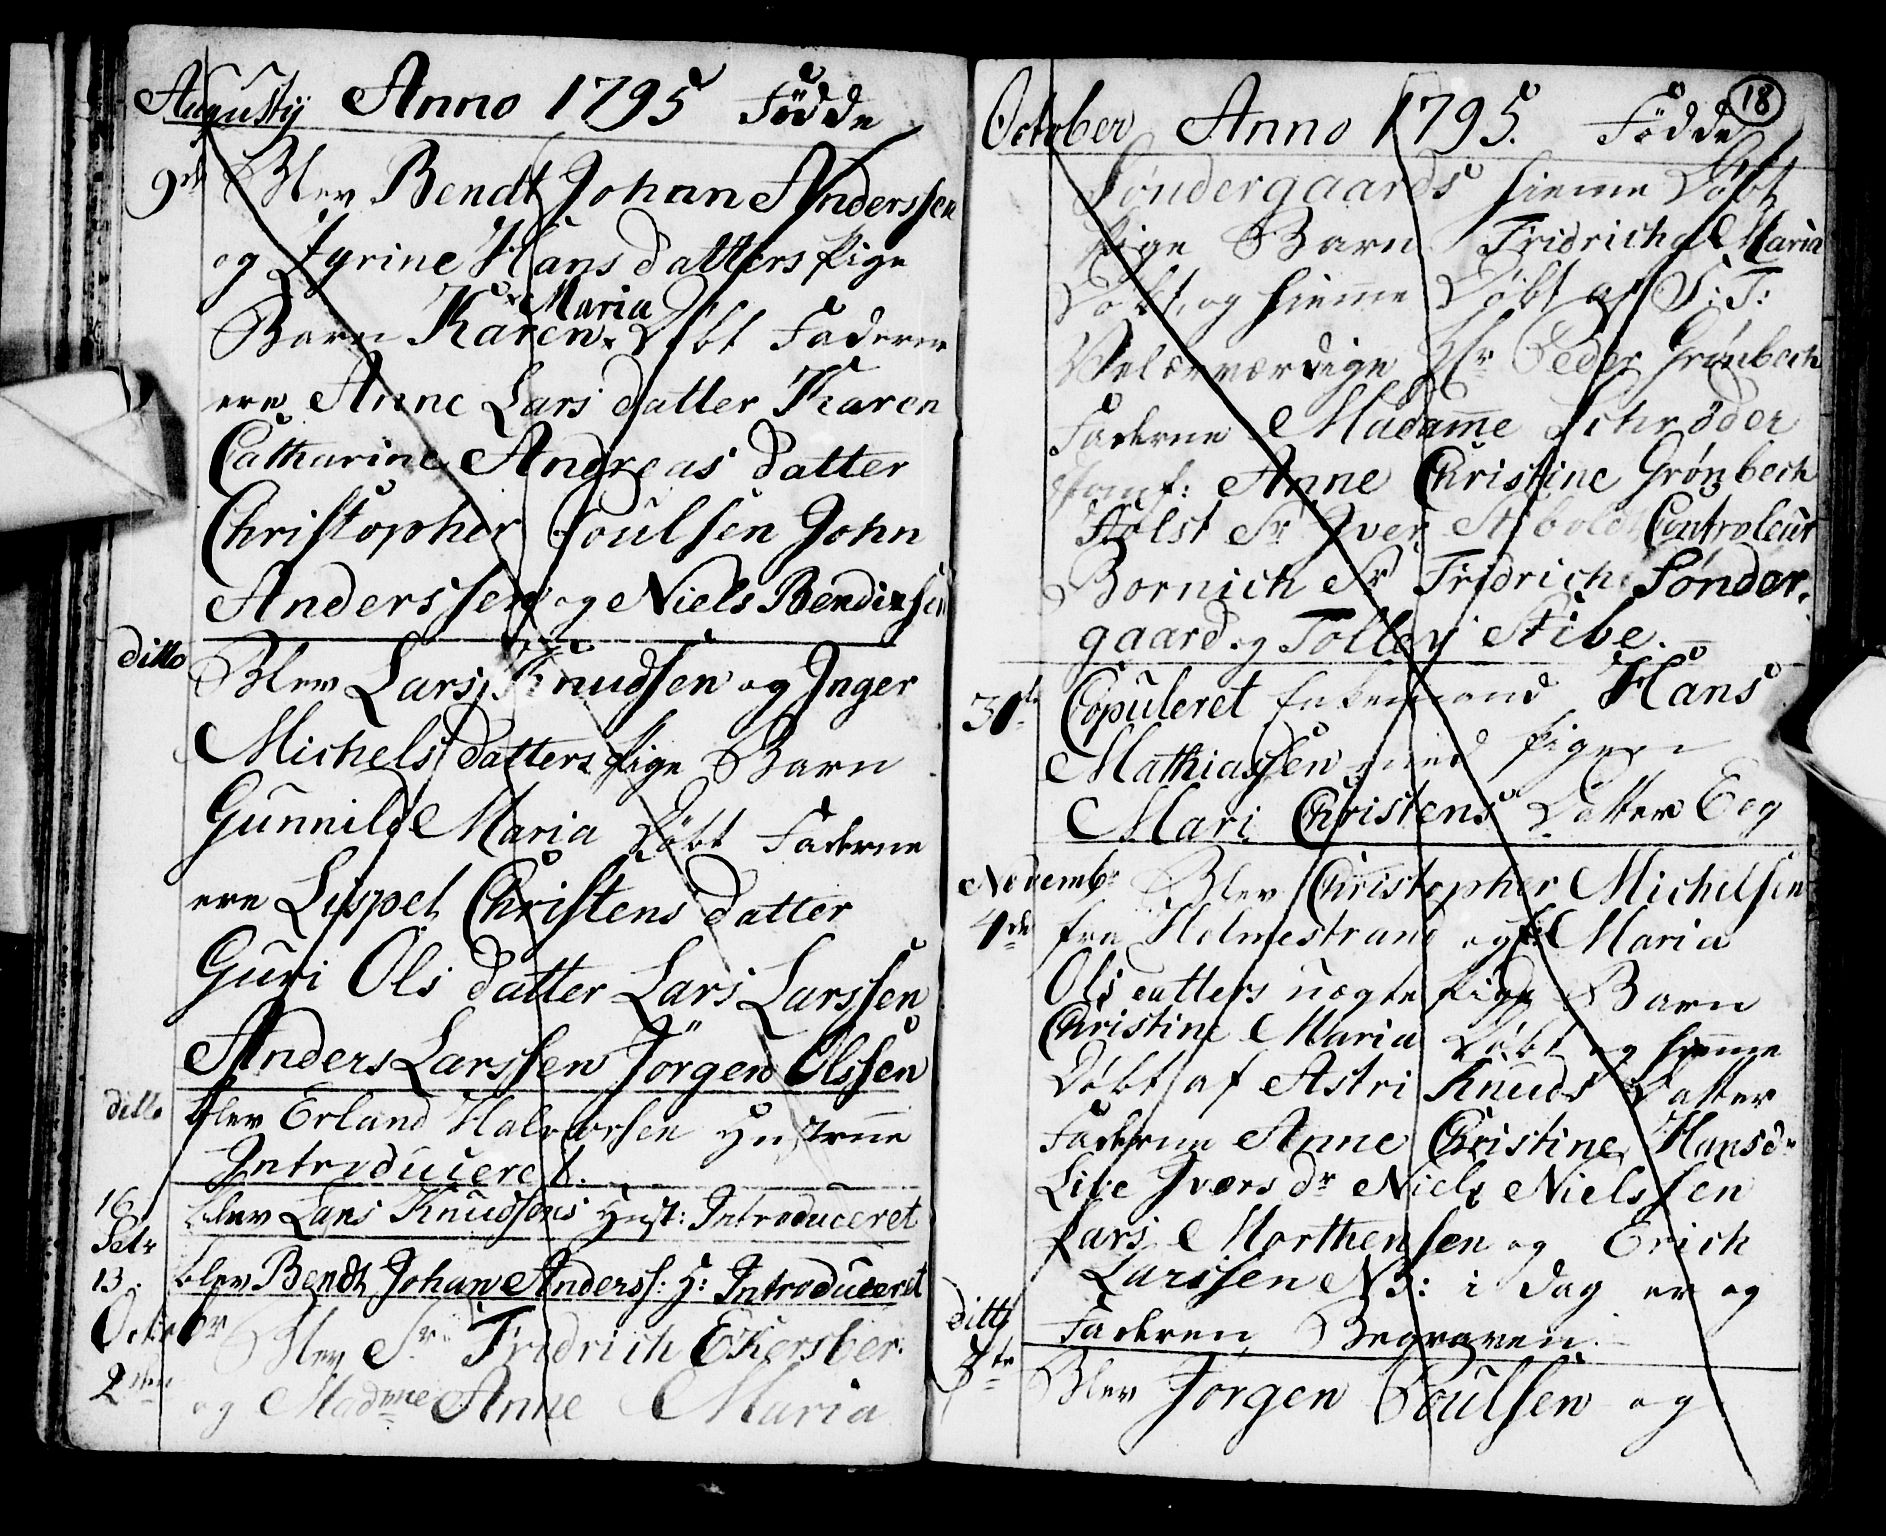 Augustij Anno 1795 Födde
9de Blev Bendt Johan Anderssen
og Zyrine Hans datters Pige
Maria
Barn Karen Døbt Faderne
ere Anne Lars datter Karen
Catharine Andreas datter
Christopher Poulsen John
Anderssen og Niels Bendixsen
ditto Blev Lars Knudsen og Inger
Michels datters Pige Barn
Gunnild Maria Døbt Faderne
ere Lispet Christens datter
Guri Ols datter Lars Larssen
Anders Larssen Jörgen Olssen
ditto blev Erland Halvorsen Hustrue
Introduceret.
16 blev Lars Knudsens Hust: Introduceret
13. blev Bendt Johan Anderss: H: Introduceret
Octobr
2den Blev Sr Fridrich
og Madme Anne Maria
18
October Anno 1795. Födde
Søndergaards hieme Døbt
Pige Barn Fridricha Maria
Døbt, og hieme Døbt af S: T:
Velærværdige Hr Peder Grønbech
Faderne Madame Schrøder
Jomf: Anne Christine Grønbech
Holst Sr Iver Controleur
Bornich Sr Fridrich Sønder,
gaard og Tolley Stibe.
Copuleret Enkemand Hans
Mathiassen med Pigen
Mari Christens Datter Eeg
Novembr Blev Christopher Michelsen
4de fra Holmestrand og Maria
Ols datters uægte Pige Barn
Christine Maria Døbt og hieme
Døbt af Astri Knuds Datter
Faderne Anne Christine Hansdr
Live Ivers dr Niels Nielssen
Lars Morthensen og Erich
Larssen NB: i dag er og
ditto Faderen Begraven
Blev Jorgen Poulsen og